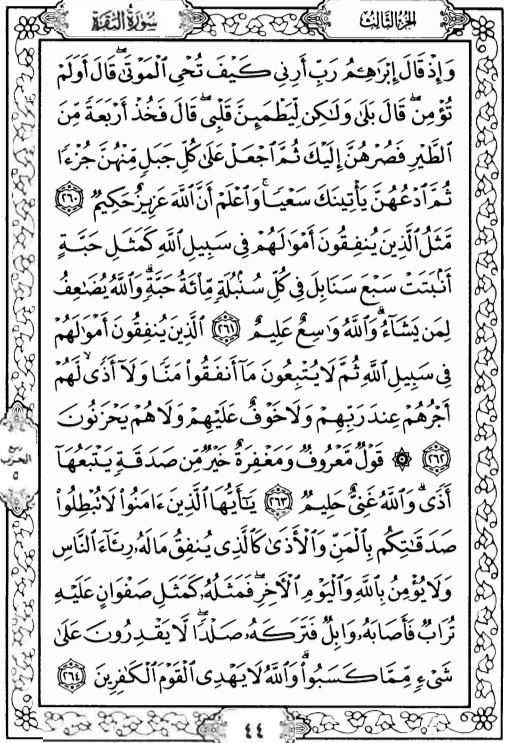 سُورَةُ البَقَرَةِ
الجُزْءُ الثَّالِثُ
وَإِذْ قَالَ إِبْرَٰهِـۧمُ رَبِّ أَرِنِى كَيْفَ تُحْىِ ٱلْمَوْتَىٰ ۖ قَالَ أَوَلَمْ
تُؤْمِن ۖ قَالَ بَلَىٰ وَلَـٰكِن لِّيَطْمَئِنَّ قَلْبِى ۖ قَالَ فَخُذْ أَرْبَعَةً مِّنَ
ٱلطَّيْرِ فَصُرْهُنَّ إِلَيْكَ ثُمَّ ٱجْعَلْ عَلَىٰ كُلِّ جَبَلٍ مِّنْهُنَّ جُزْءًا
ثُمَّ ٱدْعُهُنَّ يَأْتِينَكَ سَعْيًا ۚ وَٱعْلَمْ أَنَّ ٱللَّهَ عَزِيزٌ حَكِيمٌ ٢٦٠
مَّثَلُ ٱلَّذِينَ يُنفِقُونَ أَمْوَٰلَهُمْ فِى سَبِيلِ ٱللَّهِ كَمَثَلِ حَبَّةٍ
أَنۢبَتَتْ سَبْعَ سَنَابِلَ فِى كُلِّ سُنۢبُلَةٍ مِّا۟ئَةُ حَبَّةٍ ۗ وَٱللَّهُ يُضَـٰعِفُ
لِمَن يَشَآءُ ۗ وَٱللَّهُ وَٰسِعٌ عَلِيمٌ ٢٦١ ٱلَّذِينَ يُنفِقُونَ أَمْوَٰلَهُمْ
فِى سَبِيلِ ٱللَّهِ ثُمَّ لَا يُتْبِعُونَ مَآ أَنفَقُوا۟ مَنًّا وَلَآ أَذًى ۙ لَّهُمْ
أَجْرُهُمْ عِندَ رَبِّهِمْ وَلَا خَوْفٌ عَلَيْهِمْ وَلَا هُمْ يَحْزَنُونَ
٢٦٢ ۞ قَوْلٌ مَّعْرُوفٌ وَمَغْفِرَةٌ خَيْرٌ مِّن صَدَقَةٍ يَتْبَعُهَآ
أَذًى ۗ وَٱللَّهُ غَنِىٌّ حَلِيمٌ ٢٦٣ يَـٰٓأَيُّهَا ٱلَّذِينَ ءَامَنُوا۟ لَا تُبْطِلُوا۟
صَدَقَـٰتِكُم بِٱلْمَنِّ وَٱلْأَذَىٰ كَٱلَّذِى يُنفِقُ مَالَهُۥ رِئَآءَ ٱلنَّاسِ
وَلَا يُؤْمِنُ بِٱللَّهِ وَٱلْيَوْمِ ٱلْـَٔاخِرِ ۖ فَمَثَلُهُۥ كَمَثَلِ صَفْوَانٍ عَلَيْهِ
تُرَابٌ فَأَصَابَهُۥ وَابِلٌ فَتَرَكَهُۥ صَلْدًا ۖ لَّا يَقْدِرُونَ عَلَىٰ
شَىْءٍ مِّمَّا كَسَبُوا۟ ۗ وَٱللَّهُ لَا يَهْدِى ٱلْقَوْمَ ٱلْكَـٰفِرِينَ ٢٦٤
ربع
الحزب
٥
٤٤